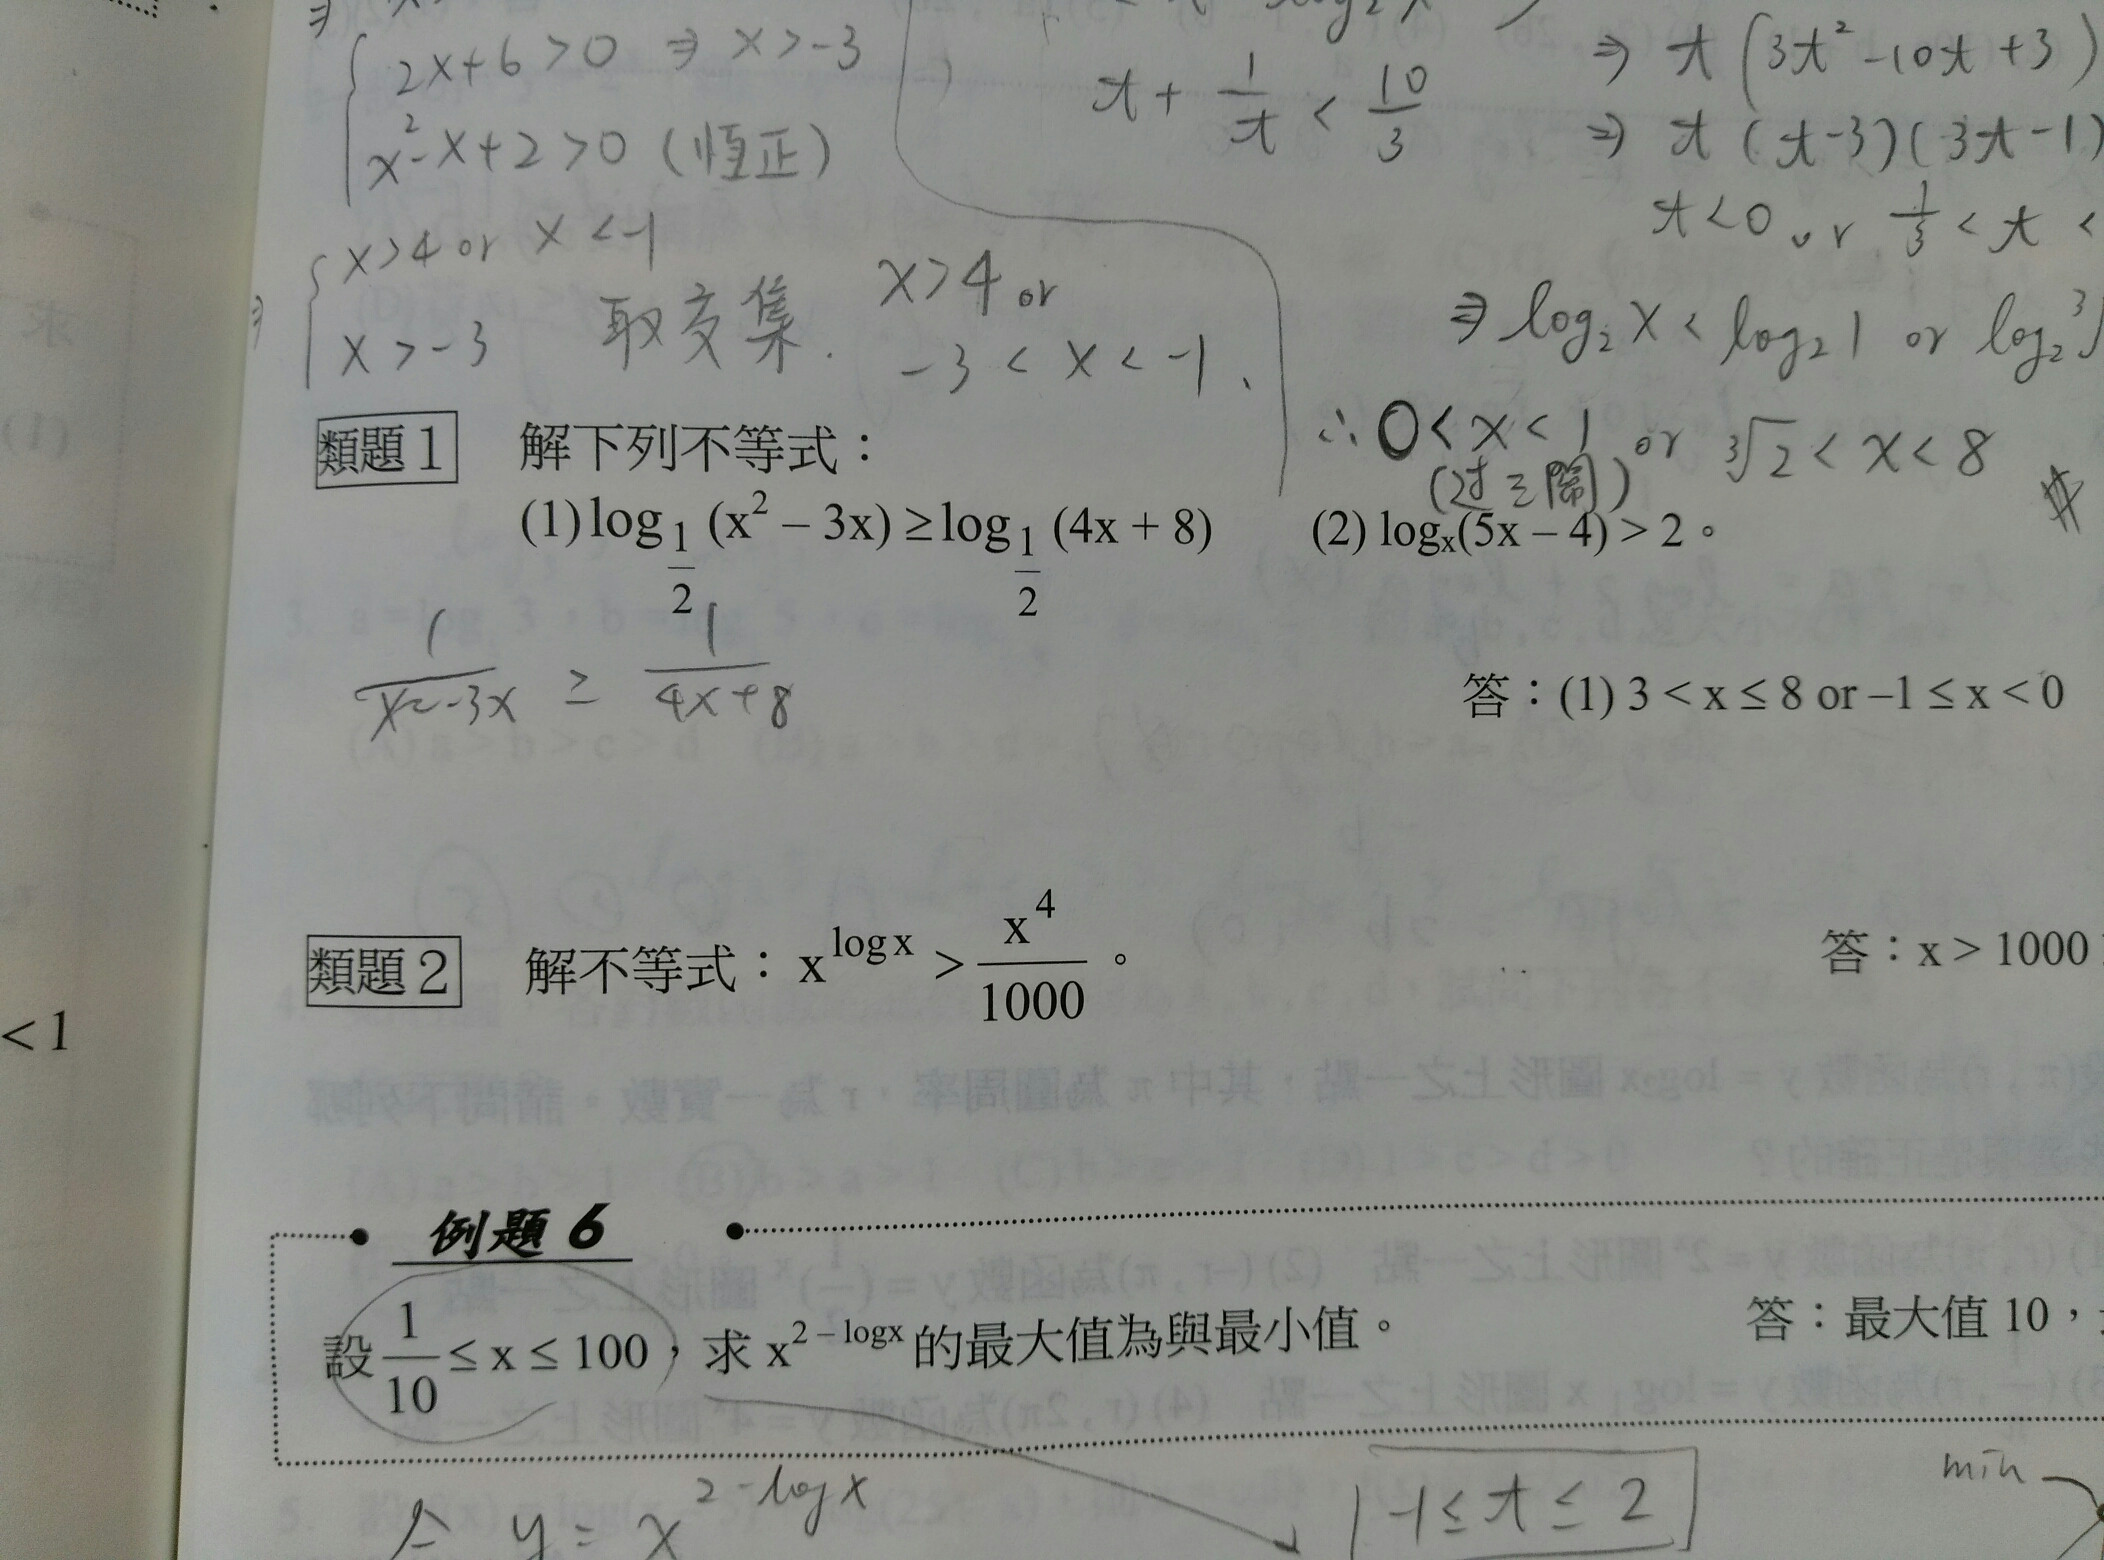 2x+6>0 ⇒ x>-3
x²-x+2>0 (恆正)
x>4 or x<-1
x>-3 取交集. x>4 or
-3<x<-1、
t+1/t<10/3
⇒ t(3t²-10t+3)
⇒ t(t-3)(3t-1)
t<0 or 1/3<t<
⇒ log₂x<log₂1 or log₂
∴ 0<x<1 or ³√2<x<8
(过三關)
類題1 解下列不等式：
(1) log_{1/2}(x²–3x)≥log_{1/2}(4x+8) (2) logₓ(5x–4)>2。
1/(x²-3x) ≥ 1/(4x+8)
答：(1) 3<x≤8 or –1≤x<0
類題2 解不等式：x^{logx}>x⁴/1000。 答：x>1000
<1
例題6
設1/10≤x≤100，求x^{2–logx}的最大值為與最小值。 答：最大值10，
令 y=x^{2-logx}
-1≤t≤2
min